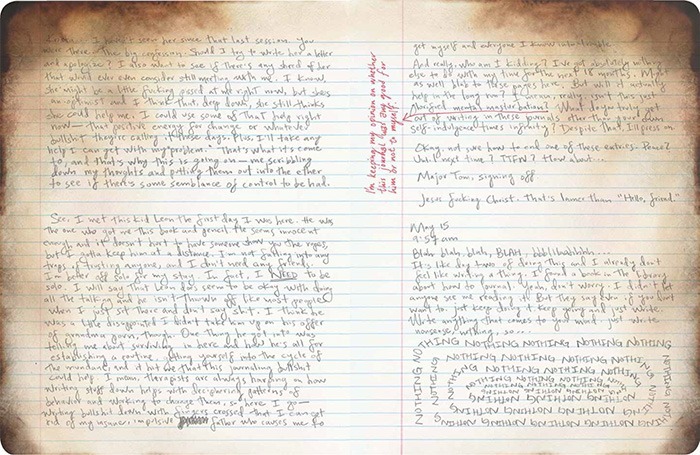 I haven't seen her since that last session. You
were there. The big confession. Should I try to write her a letter
and apologize? I also want to see if there's any shred of her
that would ever even consider still meeting with me. I know,
she might be a little fucking pissed at me right now, but she's
an optimist and I think that, deep down, she still thinks
she could help me. I could use some of that help right
now— that positive energy for change or whatever
bullshit they're calling it these days. Plus, I'll take any
help I can get with my problem. That's what it's come
to, and that's why this is going on— me scribbling
down my thoughts and putting them out into the ether
to see if there's some semblance of control to be had.
See, I met this kid Leon the first day I was here. He was
the one who got me this book and pencil. He seems innocent
enough and it doesn't hurt to have someone show you the ropes,
but I gotta keep him at a distance. I'm not falling into any
traps of trusting anyone, and I don't need any friends.
I'm better off solo for my stay. In fact, I NEED to be
solo. I will say that Leon does seem to be okay with doing
all the talking and he isn't thrown off like most people
when I just sit there and don't say shit. I think he
was a little disappointed I didn't take him up on his offer
of grandma porn, though. One thing he got into was
telling me about surviving in here and how he's all for
establishing a routine, getting yourself into the cycle of
the mundane, and it hit me that this journaling bullshit
could help. I mean, therapists are always harping on how
writing stuff down helps with deciphering patterns of
behavior and working to change them, so here I go—
writing bullshit down with fingers crossed that I can get
rid of my insane, impulsive father who causes me to
I'm keeping my opinion on whether
this journal was any good for
him or not to myself.
get myself and everyone I know into trouble.
And really, who am I kidding? I've got absolutely nothing
else to do with my time for the next 18 months. Might
as well blab to these pages here. But will it actually
help in the long run? Or is this really just this just
glorified mental masturbation? What do you truly get
out of writing in these journals other than your own
self-indulgence times infinity? Despite that, I'll press on.
Okay, not sure how to end one of these entries. Peace?
Until next time? TTFN? How about...
Major Tom, signing off
Jesus fucking Christ. That's lamer than "Hello, friend."
May 15
9:57 am
Blah blah blah, BLAH, bbblbahhhh....
It's like day two of doing this and I already don't
feel like writing a thing. I found a book in the library
about how to journal. Yeah, don't worry. I didn't let
anyone see me reading it. But they say even if you don't
want to, just keep doing it, keep going and just write.
Write anything that comes to your mind. Just write
nonsense, nothing, so...
NOTHING NOTHING NOTHING NOTHING NOTHING
NOTHING NOTHING NOTHING NOTHING NOTHING
NOTHING NOTHING NOTHING NOTHING
NOTHING NOTHING NOTHING
NOTHING NOTHING NOTHING NOTHING
NOTHING NOTHING NOTHING NOTHING
NOTHING NOTHING NOTHING NOTHING